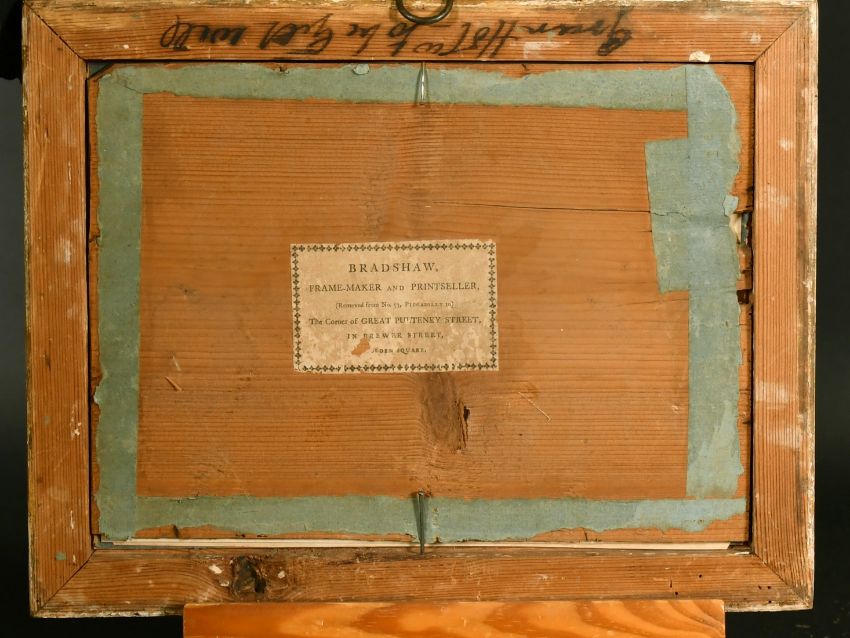 to be Gilt
BRADSHAW,
FRAME-MAKER AND PRINTSELLER,
[Removed from No. 53, PICCADILLY to]
The Corner of GREAT PULTENEY STREET,
IN BREWER STREET,
DEN SQUARE.